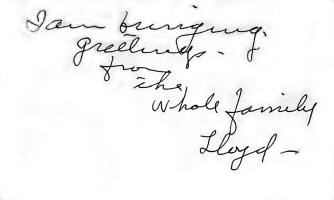 I am bringing.
greetings -
from
the
whole family
Lloyd -